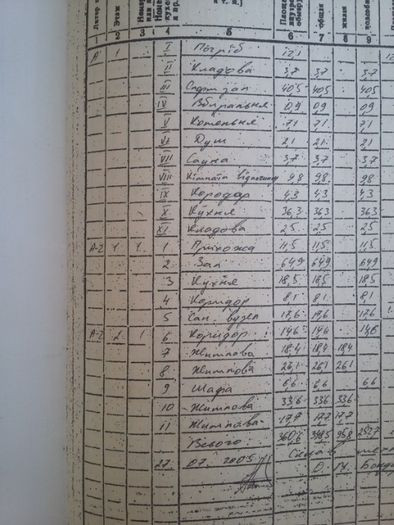 Этаж
2 3 4 5 6 7 8 9
1 I Погріб 12,1
II Кладова 3,7 3,7 3,7
III Спортзал 40,5 40,5 40,5
IV Вбиральня 0,9 0,9 0,9
V Котельня 7,1 7,1 7,1
VI Душ 2,1 2,1 2,1
VII Сауна 3,7 3,7 3,7
VIII Кімната відпочинку 9,8 9,8 9,8
IX Коридор 4,3 4,3 4,3
X Кухня 36,3 36,3 36,3
XI Кладова 2,5 2,5 2,5
А-2 1 1 1 Прихожа 11,5 11,5 11,5
2 Зал 64,9 64,9 64,9
3 Кухня 18,5 18,5 18,5
4 Коридор 8,1 8,1 8,1
5 Сан. вузел 17,6 17,6 17,6
А-2 2 1 6 Коридор 14,6 14,6 14,6
7 Житлова 18,4 18,4 18,4
8 Житлова 26,1 26,1 26,1
9 Шафа 6,6 6,6 6,6
10 Житлова 33,6 33,6 33,6
11 Житлова 17,7 17,7 17,7
Всього 95,8
27. 07. 2005